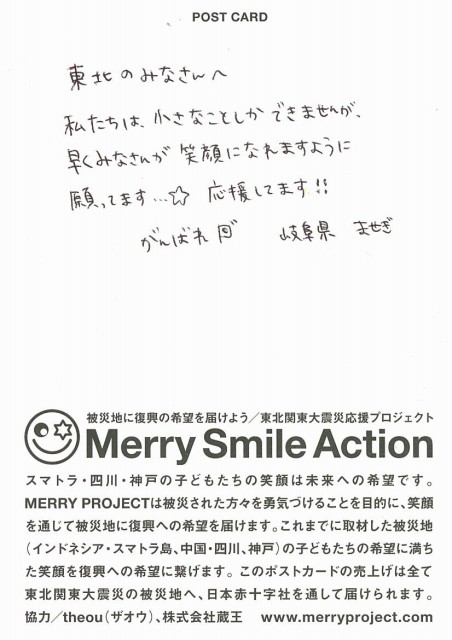 POST CARD
東北のみなさんへ
私たちは、小さなことしかできませんが、
早くみなさんが笑顔になれますように
願ってます…☆ 応援してます!!
がんばれ 岐阜県 ませぎ
被災地に復興の希望を届けよう／東北関東大震災応援プロジェクト
Merry Smile Action
スマトラ・四川・神戸の子どもたちの笑顔は未来への希望です。
MERRY PROJECTは被災された方々を勇気づけることを目的に、笑顔
を通じて被災地に復興への希望を届けます。これまでに取材した被災地
（インドネシア・スマトラ島、中国・四川、神戸）の子どもたちの希望に満ち
た笑顔を復興への希望に繋げます。このポストカードの売上げは全て
東北関東大震災の被災地へ、日本赤十字社を通して届けられます。
協力／theou（ザオウ）、株式会社蔵王 www.merryproject.com